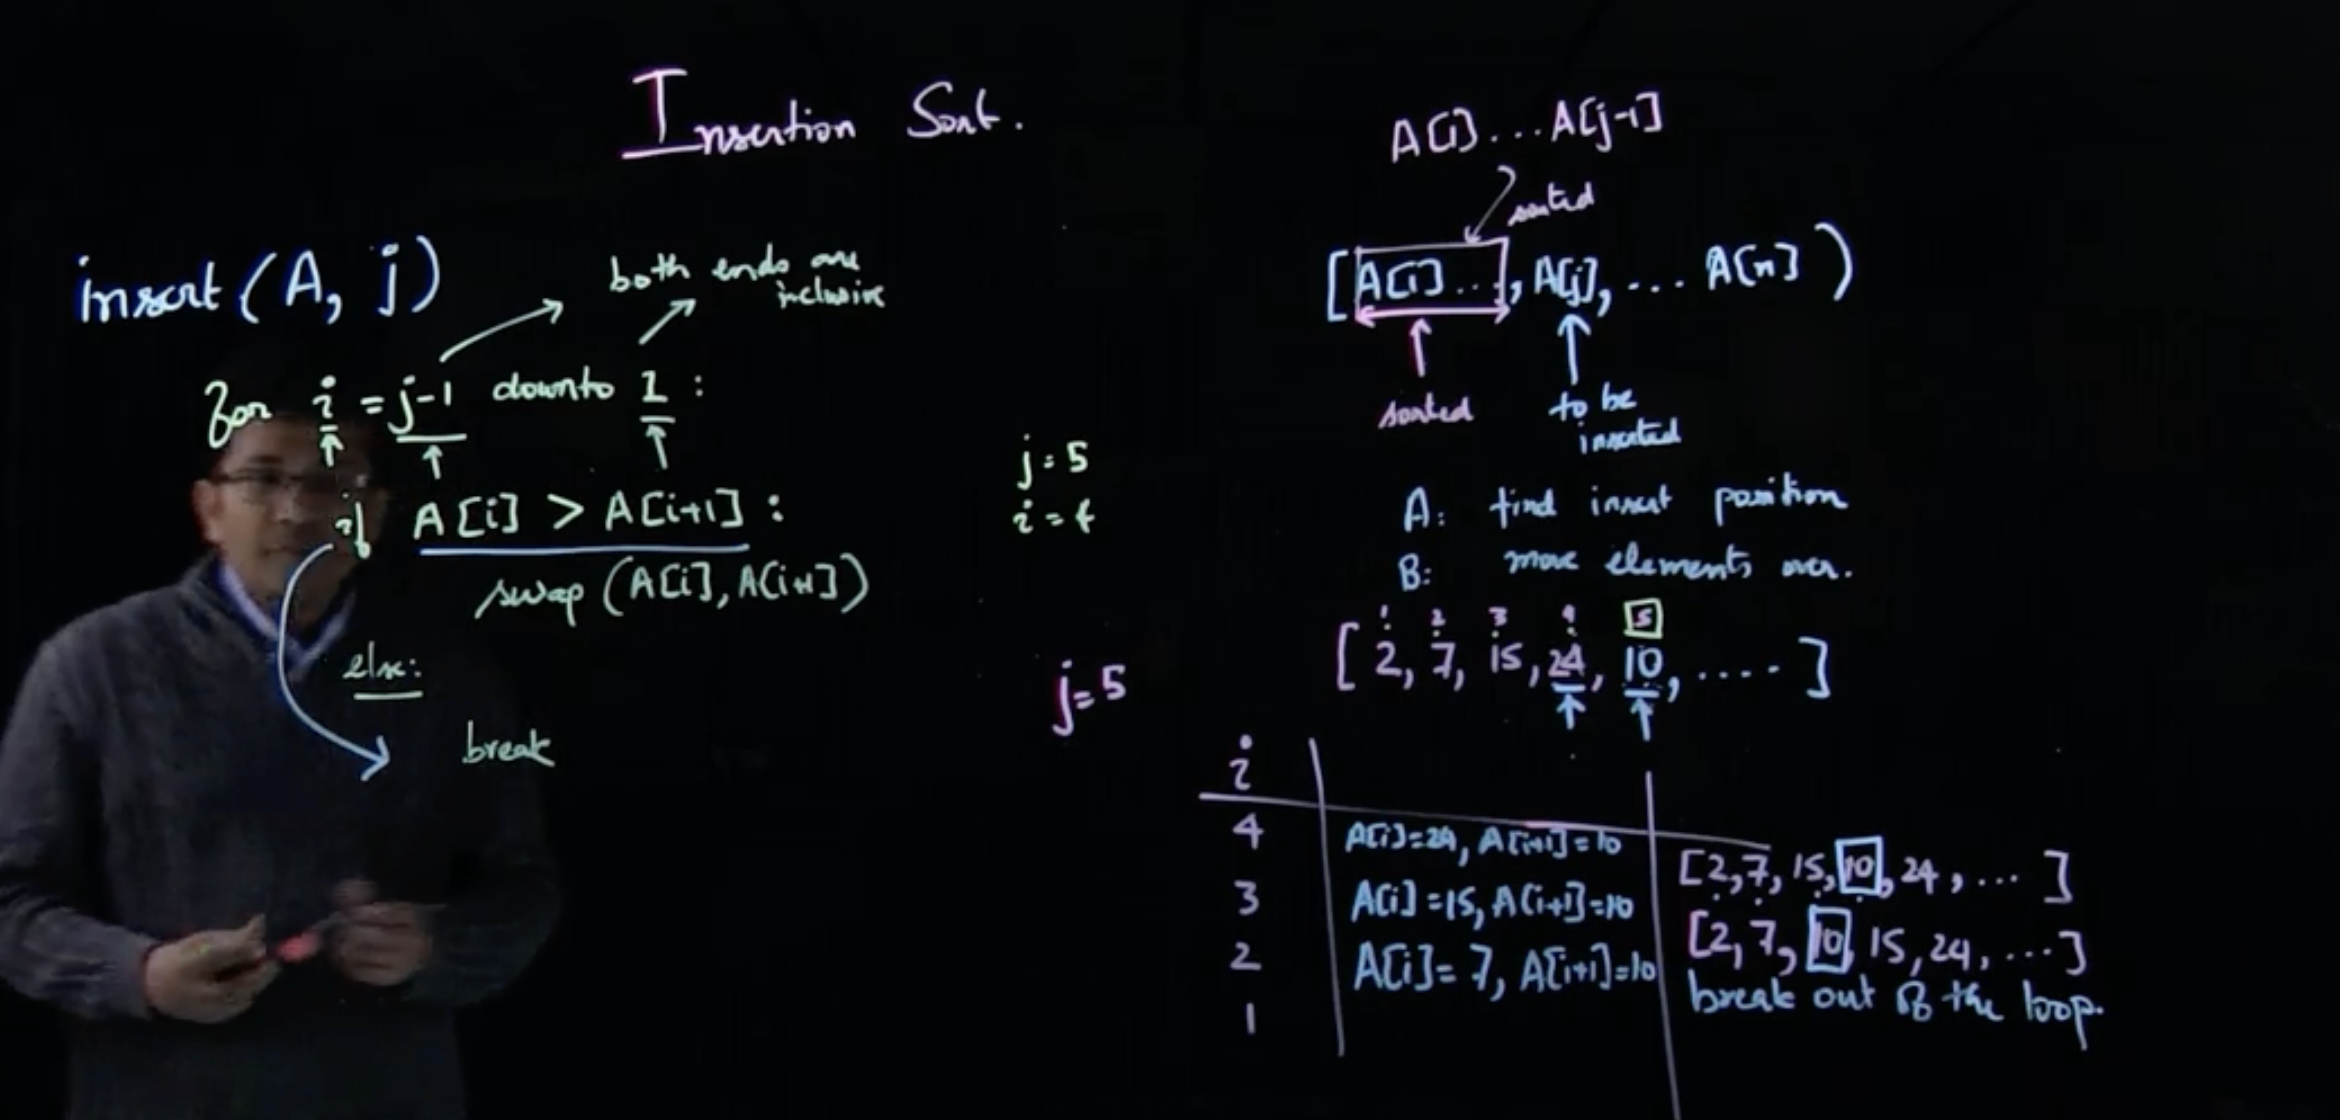 Insertion Sort.
insert(A, j)
both ends are
inclusive
for i = j-1 downto 1 :
if A[i] > A[i+1] :
swap (A[i], A[i+1])
else:
break
j = 5
i = 4
j = 5
A[1] ... A[j-1]
sorted
[A[1] ..., A[j], ... A[n])
sorted
to be
inserted
A: find insert position
B: move elements over.
1 2 3 4 5
[2, 7, 15, 24, 10, ....]
i
4 A[i]=24, A[i+1]=10 [2,7, 15, 10, 24, ... ]
3 A[i]=15, A[i+1]=10 [2,7, 10, 15, 24, ...]
2 A[i]= 7, A[i+1]=10 break out of the loop.
1